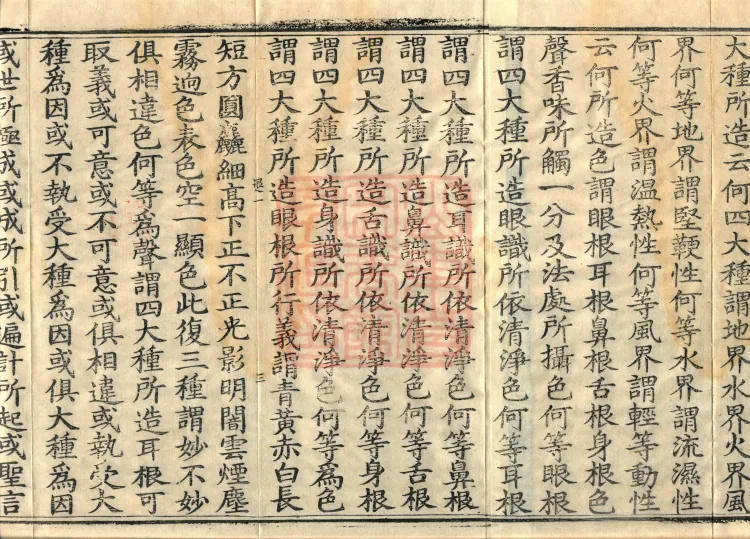 大種所造云何四大種謂地界水界火界風
界何等地界謂堅鞕性何等水界謂流濕性
何等火界謂溫熱性何等風界謂輕等動性
云何所造色謂眼根耳根鼻根舌根身根色
聲香味所觸一分及法處所攝色何等眼根
謂四大種所造眼識所依清淨色何等耳根
謂四大種所造耳識所依清淨色何等鼻根
謂四大種所造鼻識所依清淨色何等舌根
謂四大種所造舌識所依清淨色何等身根
謂四大種所造身識所依清淨色何等爲色
謂四大種所造眼根所行義謂青黃赤白長
一 三
短方圓麤細高下正不正光影明闇雲煙塵
霧逈色表色空一顯色此復三種謂妙不妙
俱相違色何等爲聲謂四大種所造耳根可
取義或可意或不可意或俱相違或執受大
種爲因或不執受大種爲因或俱大種爲因
或世所極成或成所引或遍計所起或聖言